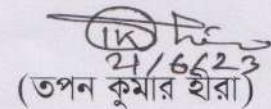 21/6/23
(তপন কুমার হীরা)